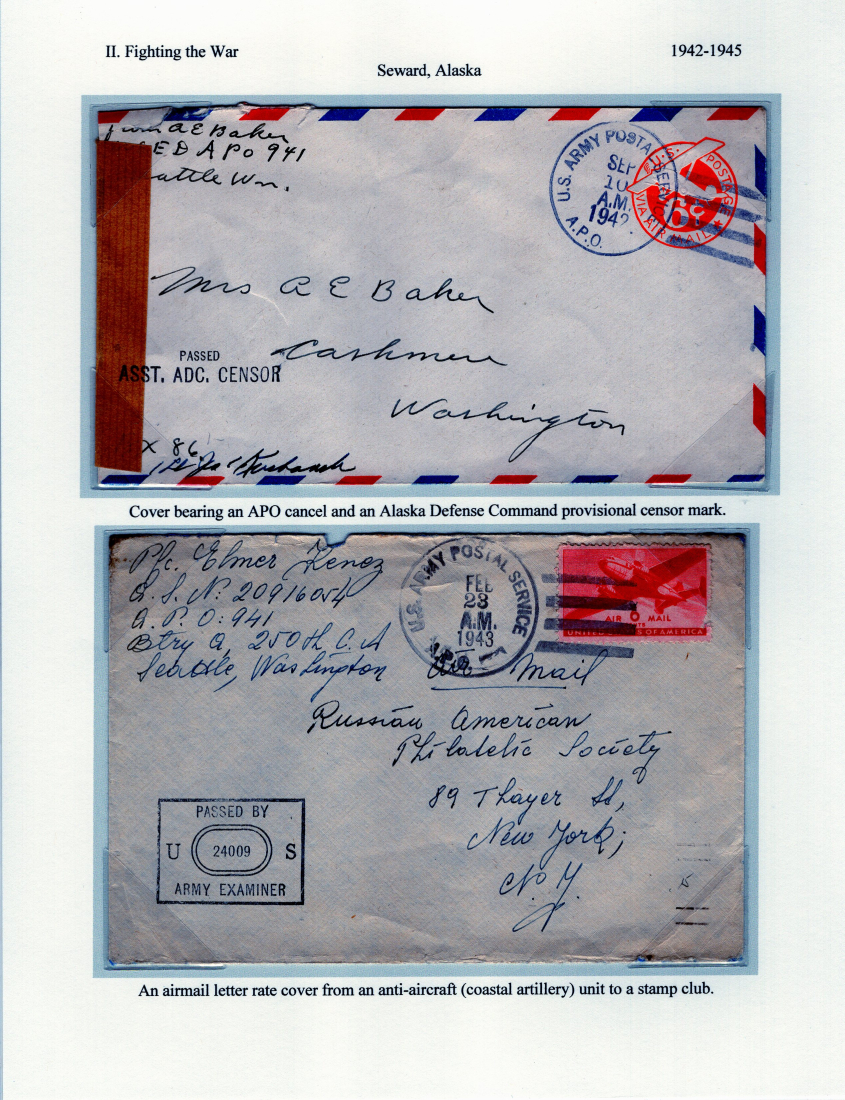 II. Fighting the War
1942-1945
Seward, Alaska
from A E Baker
E D A P O 941
attle Wn.
U.S. ARMY POSTAL SERVICE
SEP
10
A.M.
1942
A.P.O.
U.S. POSTAGE
6c
VIA AIR MAIL
Mrs A E Baker
Cashmere
Washington
PASSED
ASST. ADC. CENSOR
X 86
Cover bearing an APO cancel and an Alaska Defense Command provisional censor mark.
Pfc. Elmer
A. S. N: 20916054
A. P. O: 941
Btry A, 250th C. A
Seattle, Washington
U.S. ARMY POSTAL SERVICE
FEB
23
A.M.
1943
A.P.O.
AIR 6 MAIL
UNITED STATES OF AMERICA
Air Mail
Russian American
Philatelic Society
89 Thayer St,
New York;
N. Y.
PASSED BY
U 24009 S
ARMY EXAMINER
An airmail letter rate cover from an anti-aircraft (coastal artillery) unit to a stamp club.